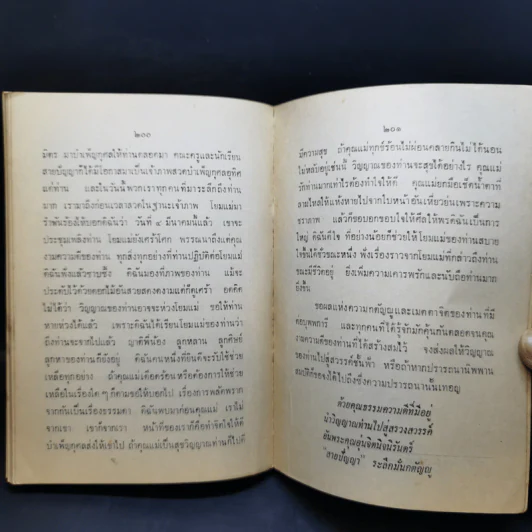 ๒๐๐
มิตร มาบำเพ็ญกุศลให้ท่านตลอดมา คณะครูและนักเรียน
สายปัญญาก็ได้มีโอกาสมาเป็นเจ้าภาพสวดบำเพ็ญกุศลอุทิศ
แด่ท่าน และในวันนี้พวกเราทุกคนที่มาระลึกถึงท่าน
มาก เรามาถึงก่อนเวลาสวดในฐานะเจ้าภาพ โยมแม่มา
รำพันร้องไห้บอกดิฉันว่า วันที่ ๔ มีนาคมนี้แล้ว เขาจะ
ประชุมเพลิงท่าน โยมแม่ยังเศร้าโศก พรรณนาถึงแต่คุณ
งามความดีของท่าน ทุกสิ่งทุกอย่างที่ท่านปฏิบัติต่อโยมแม่
ดิฉันฟังแล้วซาบซึ้ง ดิฉันมองที่ภาพของท่าน แม้จะ
ประดับไว้ด้วยดอกไม้อันสวยสดงดงามแต่ก็ดูเศร้า อดคิด
ไม่ได้ว่า วิญญาณของท่านอาจจะห่วงโยมแม่ ขอให้ท่าน
หายห่วงได้แล้ว เพราะดิฉันได้เรียนโยมแม่ของท่านว่า
ถึงท่านจะจากไปแล้ว ญาติพี่น้อง ลูกหลาน ลูกศิษย์
ลูกหาของท่านก็ยังอยู่ ดิฉันคนหนึ่งที่ยินดีจะรับใช้ช่วย
เหลือทุกอย่าง ถ้าคุณแม่เดือดร้อนหรือต้องการให้ช่วย
เหลือในเรื่องใด ๆ ก็ตามขอให้บอกไป เรื่องการพลัดพราก
จากกันเป็นเรื่องธรรมดา ดิฉันพบมาก่อนคุณแม่ เราไม่
จากเขา เขาก็จากเรา หน้าที่ของเราก็คือทำจิตให้ดี
บำเพ็ญกุศลส่งให้เขาไป ถ้าคุณแม่เป็นสุขวิญญาณท่านก็ไปดี
๒๐๑
มีความสุข ถ้าคุณแม่ทุกข์ร้อนไม่ผ่อนคลายกินไม่ได้นอน
ไม่หลับอยู่เช่นนี้ วิญญาณของท่านจะสุขได้อย่างไร คุณแม่
รักท่านมากเท่าไรต้องทำใจให้ดี คุณแม่ยกมือเช็ดน้ำตาที่
ลามไหลให้แห้งหายไปจากใบหน้าอันเหี่ยวย่นเพราะความ
ชราภาพ แล้วก็ขอบอกขอบใจให้ศีลให้พรดิฉันเป็นการ
ใหญ่ ดิฉันดีใจ ที่อย่างน้อยก็ช่วยให้โยมแม่ของท่านสบาย
ใจขึ้นได้ชั่วขณะหนึ่ง ฟังเรื่องราวจากโยมแม่ที่กล่าวถึงท่าน
ขณะมีชีวิตอยู่ ยิ่งเพิ่มความเคารพรักและนับถือท่านมาก
ยิ่งขึ้น
ขอผลแห่งความกตัญญูและเมตตาจิตของท่านที่มี
ต่อบุพพการี และทุกคนที่ได้รู้จักมักคุ้นกันตลอดจนคุณ
งามความดีของท่านที่ได้สร้างสมไว้ จงส่งผลให้วิญญาณ
ของท่านไปสู่สวรรค์ชั้นฟ้า หรือถ้าหากปรารถนานิพพาน
สมบัติก็ขอจงได้ไปถึงซึ่งความปรารถนานั้นเทอญ
ด้วยคุณธรรมความดีที่มีอยู่
นำวิญญาณท่านไปสู่สรวงสวรรค์
อันพระคุณอุ่นจิตมิจนิรันดร์
"สายปัญญา" ระลึกมั่นกตัญญู